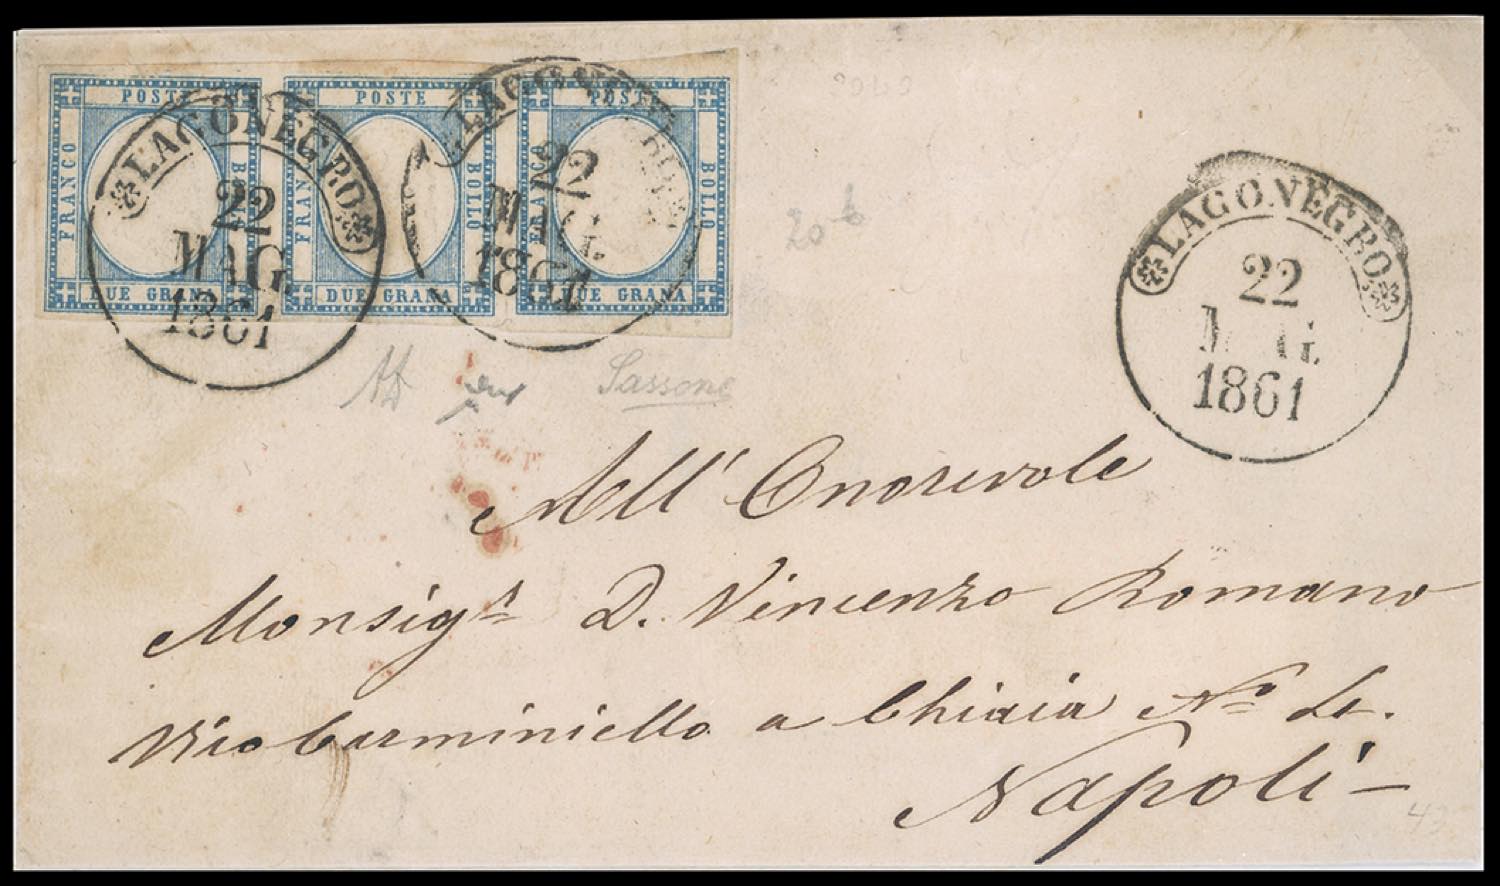 POSTE POSTE POSTE
FRANCO BOLLO FRANCO BOLLO FRANCO BOLLO
DUE GRANA DUE GRANA DUE GRANA
LAGONEGRO
22
MAG.
1861
LAGONEGRO
22
MAG.
1861
LAGONEGRO
22
MAG.
1861
20 b
Sassone
All' Onorevole
Monsigr D. Vincenzo Romano
Vico Carminiello a Chiaia No
Napoli